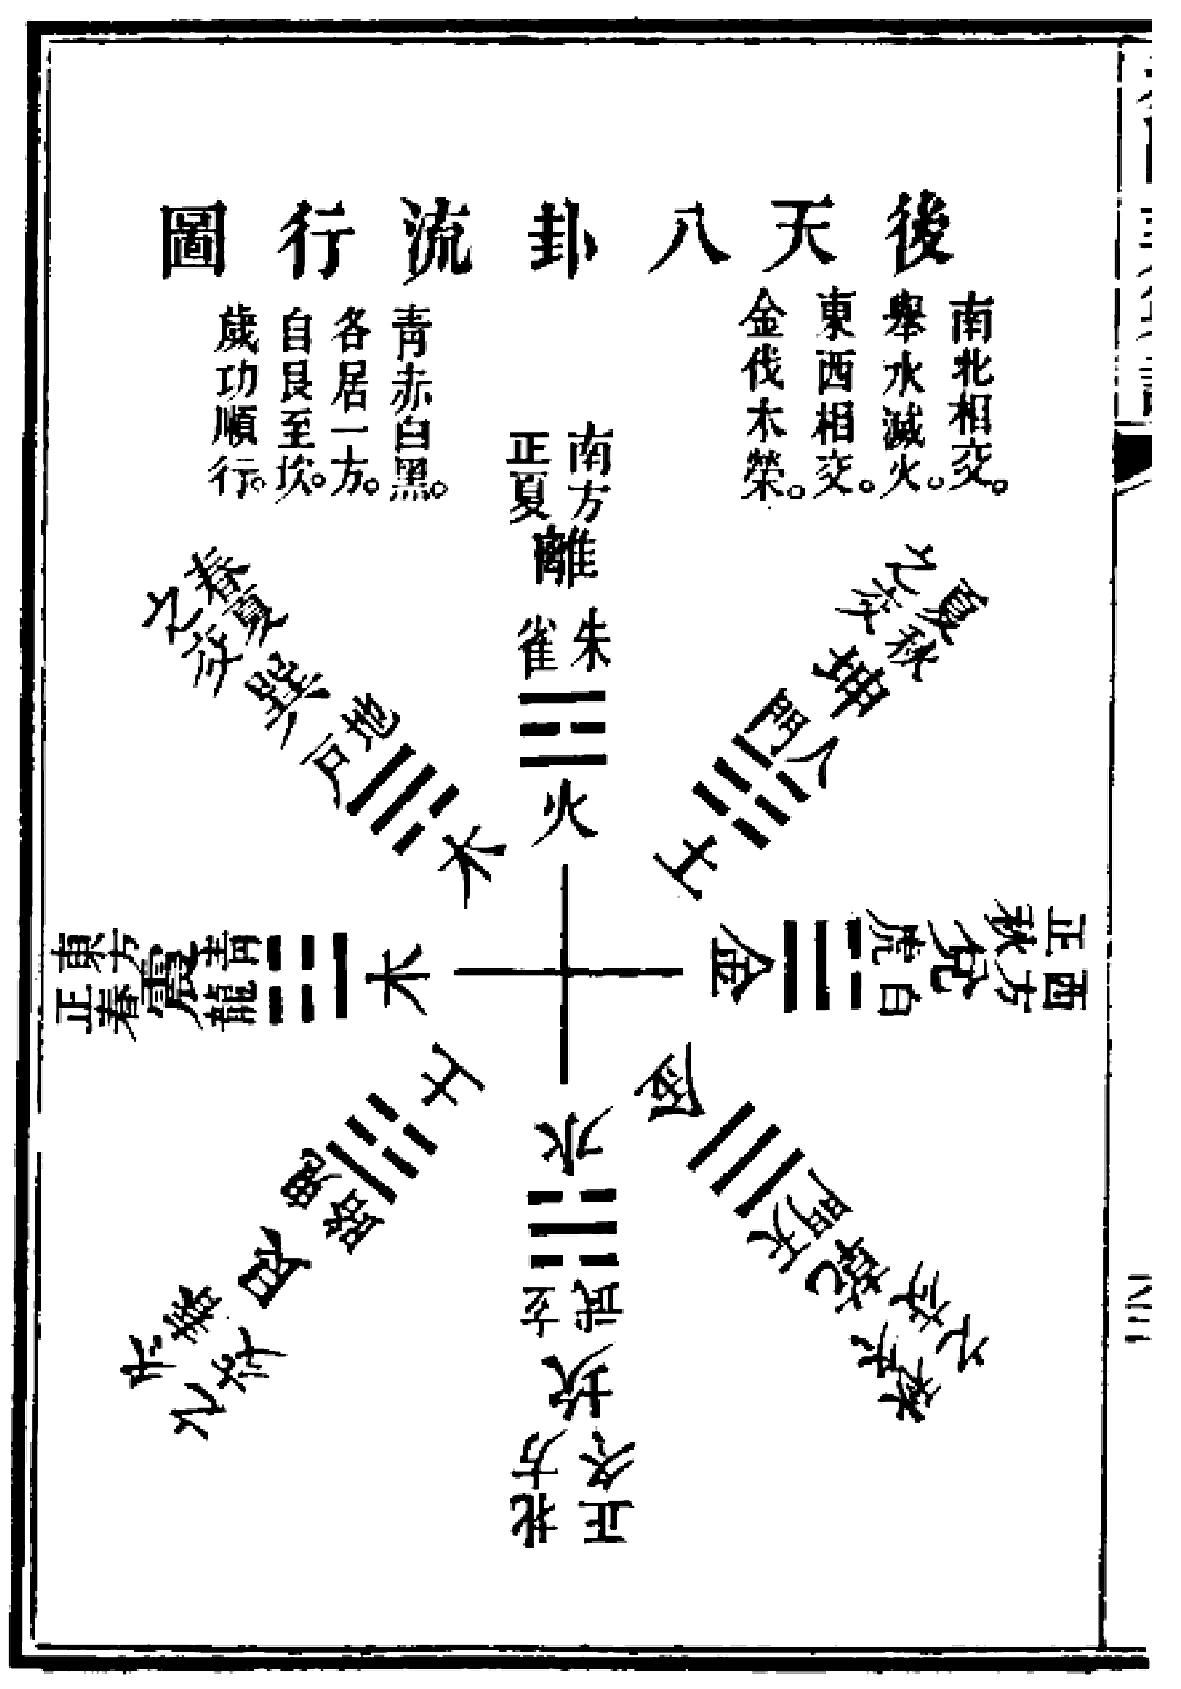 後天八卦流行圖
南北相交。
舉水滅火。
東西相交。
金伐木榮。
青赤白黑。
各居一方。
自艮至坎。
歲功順行。
南方
正夏
離
朱
雀
火
夏秋
之交
坤
人
門
土
正西
秋方
兌
白
虎
金
秋冬
之交
乾
天
門
金
正冬
北方
坎
武
玄
水
之交
艮
鬼
路
土
東方
正春
震
青
龍
木
春夏
之交
巽
地
戶
木